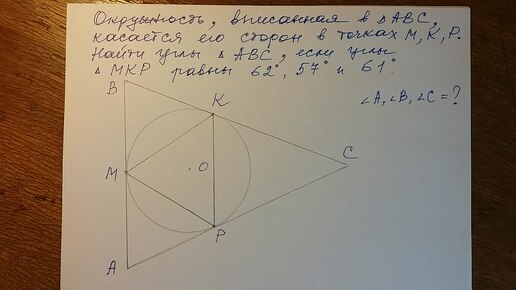 Окружность, вписанная в △ABC,
касается его сторон в точках M, K, P.
Найти углы △ABC, если углы
△MKP равны 62°, 57° и 61°.
∠A, ∠B, ∠C = ?
B
K
C
M
O
P
A